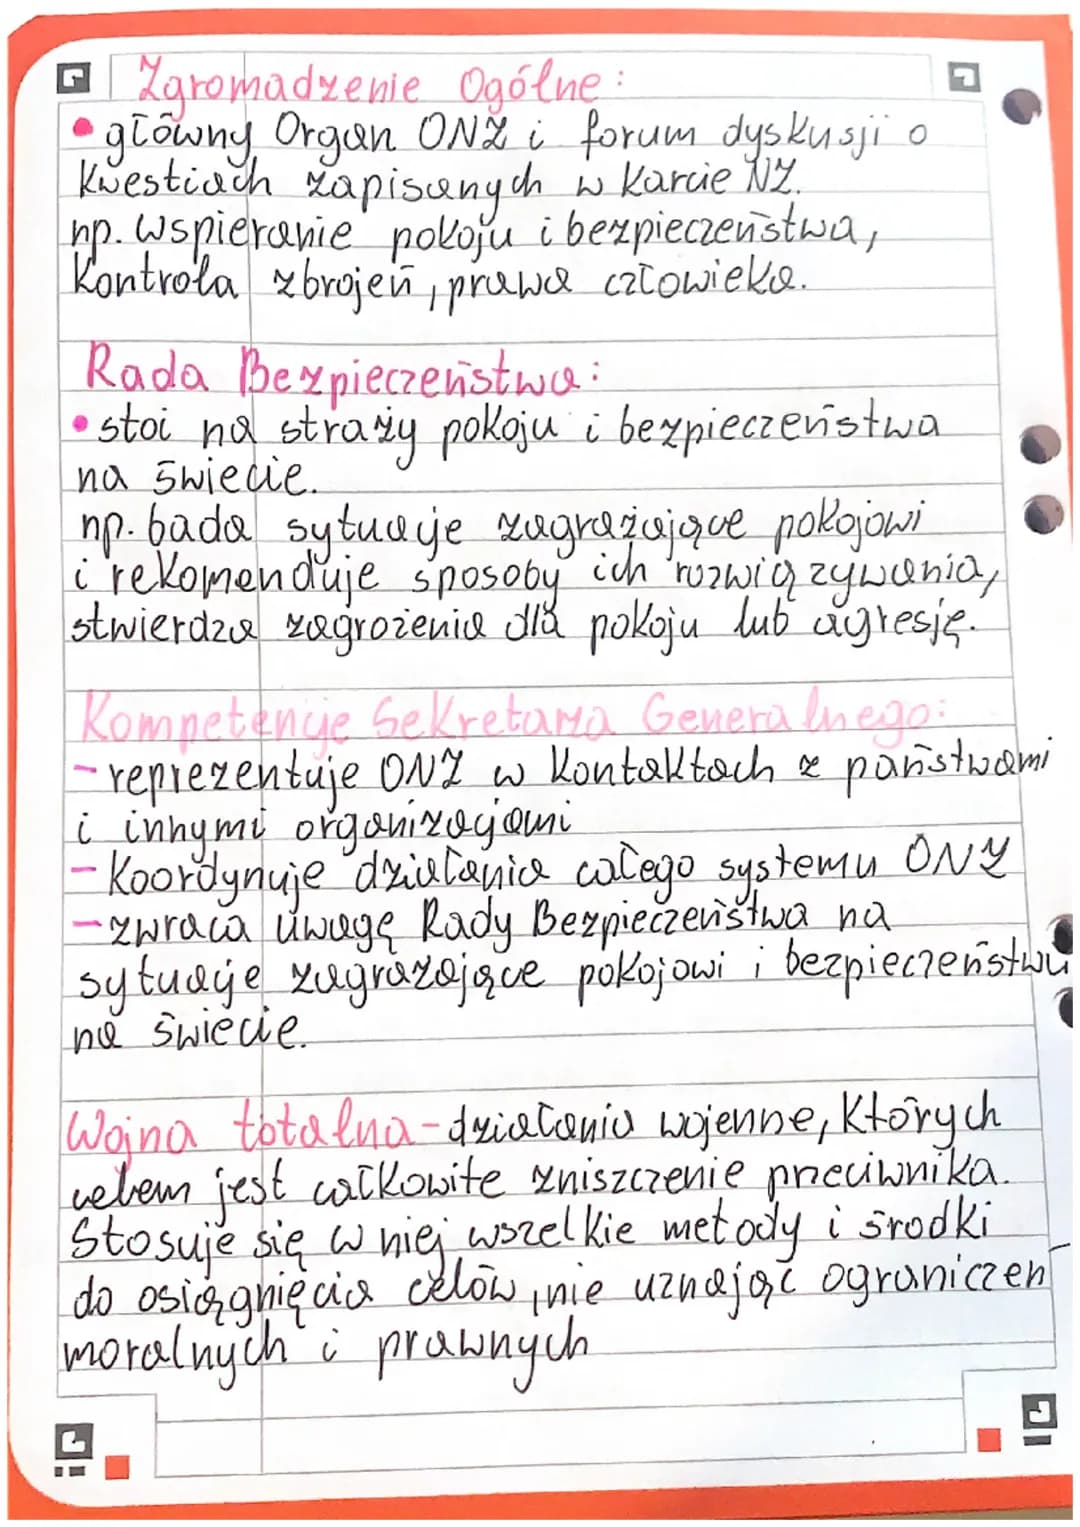 Zgromadzenie Ogólne:
• główny Organ ONZ i forum dyskusji o
Kwestiach zapisanych w Karcie NZ.
np. wspieranie pokoju i bezpieczeństwa,
Kontrola zbrojeń, prawa człowieka.
Rada Bezpieczeństwa:
• stoi na straży pokoju i bezpieczeństwa
na świecie.
np. bada sytuacje zagrażające pokojowi
i rekomenduje sposoby ich rozwiązywania,
stwierdza zagrożenia dla pokoju lub agresję.
Kompetencje Sekretarza Generalnego:
- reprezentuje ONZ w kontaktach z państwami
i innymi organizacjami
- Koordynuje działania całego systemu ONZ
- zwraca uwagę Rady Bezpieczeństwa na
sytuacje zagrażające pokojowi i bezpieczeństwu
na świecie.
Wojna totalna - działania wojenne, których
celem jest całkowite zniszczenie przeciwnika.
Stosuje się w niej wszelkie metody i środki
do osiągnięcia celów, nie uznając ograniczeń
moralnych i prawnych